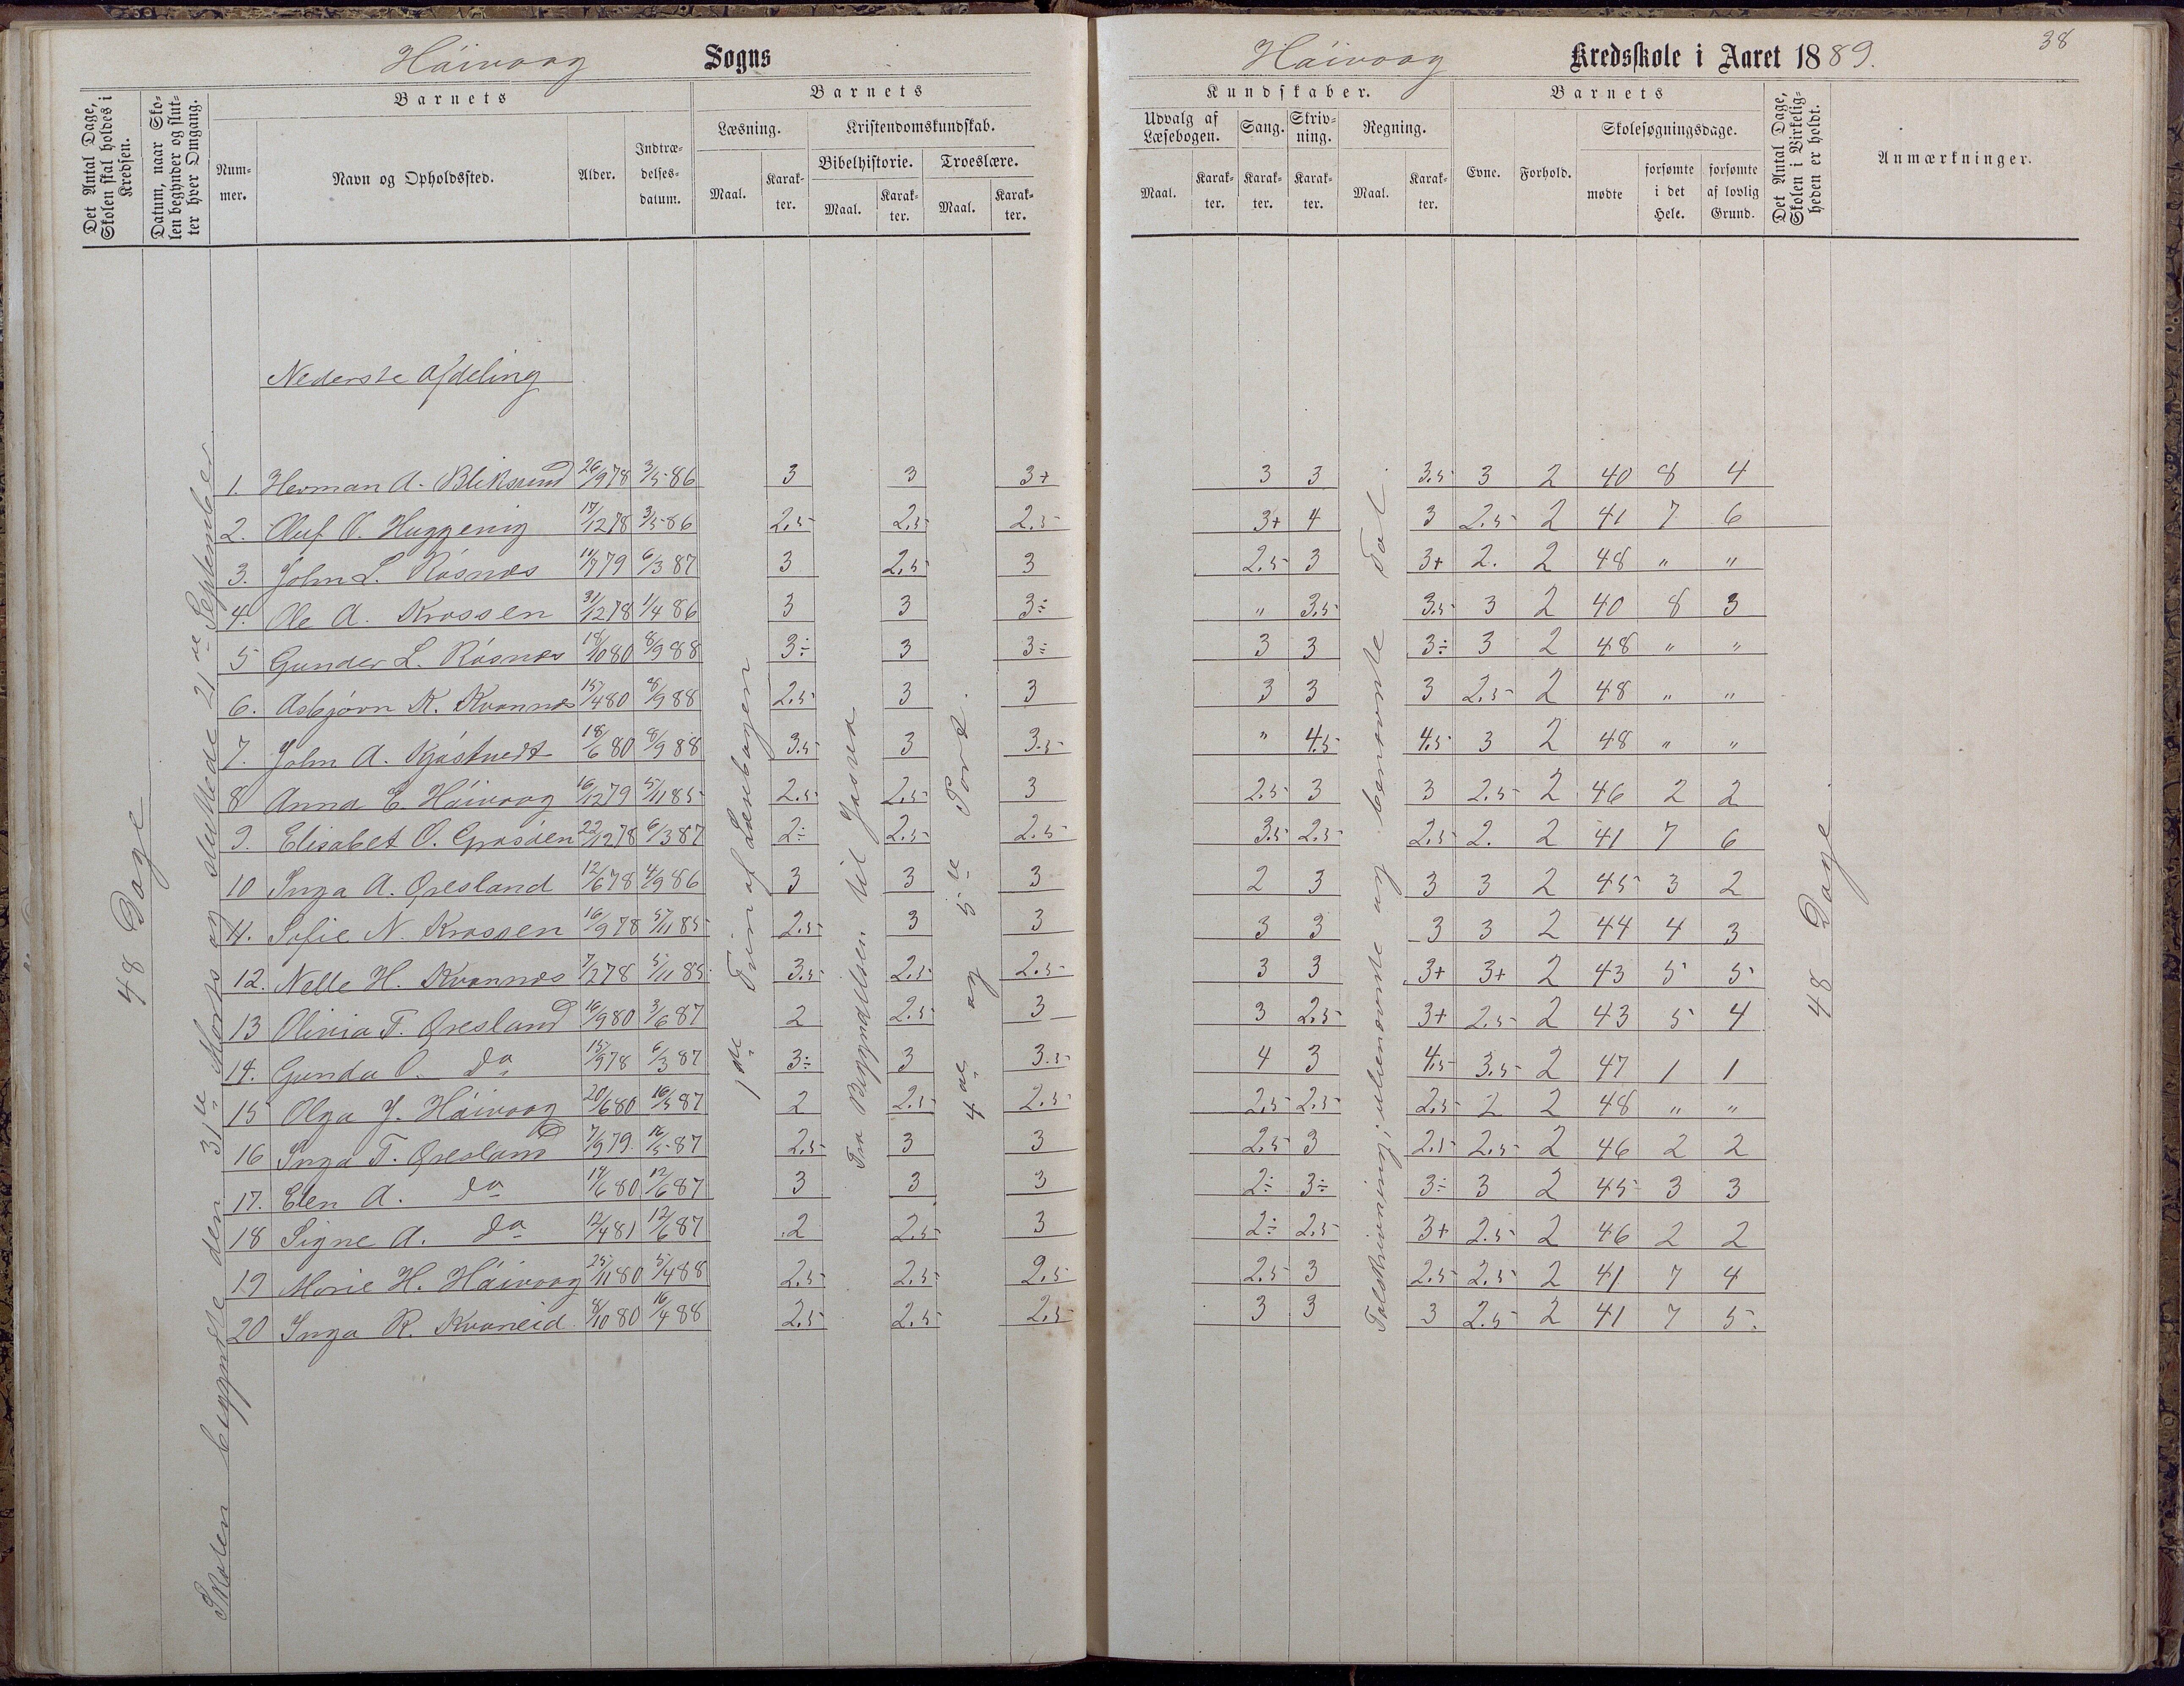 Háivaag Sogns
Háivaag Kredsskole i Aaret 1889.
38
Det Antal Dage, Skolen skal holdes i Kredsen.
Datum, naar Skolen begynder og slutter hver Omgang.
Barnets
Nummer.
Navn og Opholdssted.
Alder.
Indtrædelsesdatum.
Barnets
Læsning.
Maal.
Karakter.
Kristendomskundskab.
Bibelhistorie.
Maal.
Karakter.
Troeslære.
Maal.
Karakter.
Kundskaber.
Udvalg af Læsebogen.
Maal.
Karakter.
Sang.
Karakter.
Skrivning.
Karakter.
Regning.
Maal.
Karakter.
Barnets
Evne.
Forhold.
Skolesøgningsdage.
mødte
forsømte i det Hele.
forsømte af lovlig Grund.
Det Antal Dage, Skolen i Virkeligheden er holdt.
Anmærkninger.
48 Dage
Skolen begyndte den 31te Marts og sluttede 21de September
Nederste Afdeling
1ste Trin af Læsebogen
Fra Begyndelsen til Josva
4de og 5te Part.
Talskrivning; ubenævnte og benævnte Tal.
48 Dage
1. Herman A. Bliksund 26/9 78 3/5 86 3 3 3+ 3 3 3.5 3 2 40 8 4
2. Oluf O. Huggenig 17/12 78 3/5 86 2.5 2.5 2.5 3+ 4 3 2.5 2 41 7 6
3. John L. Rósnæs 11/7 79 6/3 87 3 2.5 3 2.5 3 3+ 2. 2 48 " "
4. Ole A. Krossen 31/12 78 1/4 86 3 3 3÷ " 3.5 3.5 3 2 40 8 3
5 Gunder L. Rósnæs 18/10 80 8/9 88 3÷ 3 3÷ 3 3 3÷ 3 2 48 " "
6. Asbjørn K. Kvannes 15/4 80 8/9 88 2.5 3 3 3 3 3 2.5 2 48 " "
7. John A. Kjóstvedt 18/6 80 8/9 88 3.5 3 3.5 " 4.5 4.5 3 2 48 " "
8 Anna E. Háivaag 16/12 79 5/11 85 2.5 2.5 3 2.5 3 3 2.5 2 46 2 2
9. Elisabet O. Grasáen 22/12 78 6/3 87 2÷ 2.5 2.5 3.5 2.5 2.5 2. 2 41 7 6
10 Inga A. Øresland 12/6 78 4/9 86 3 3 3 2 3 3 3 2 45 3 2
11. Sofie N. Krossen 16/9 78 5/11 85 2.5 3 3 3 3 3 3 2 44 4 3
12. Nelle H. Kvannes 7/2 78 5/11 85 3.5 2.5 2.5 3 3 3+ 3+ 2 43 5 5
13 Olivia T. Øresland 16/9 80 3/6 87 2 2.5 3 3 2.5 3+ 2.5 2 43 5 4
14. Gunda O. do 15/9 78 6/3 87 3÷ 3 3.5 4 3 4.5 3.5 2 47 1 1
15 Olga J. Háivaag 20/6 80 16/5 87 2 2.5 2.5 2.5 2.5 2.5 2 2 48 " "
16 Inga T. Øresland 7/9 79 16/5 87 2.5 3 3 2.5 3 2.5 2.5 2 46 2 2
17. Elen A. do 17/6 80 12/6 87 3 3 3 2÷ 3÷ 3÷ 3 2 45 3 3
18 Signe A. do 12/4 81 12/6 87 2 2.5 3 2÷ 2.5 3+ 2.5 2 46 2 2
19 Marie H. Háivaag 25/11 80 5/4 88 2.5 2.5 2.5 2.5 3 2.5 2.5 2 41 7 4
20 Inga R. Kvaneid 8/10 80 16/4 88 2.5 2.5 2.5 3 3 3 2.5 2 41 7 5.